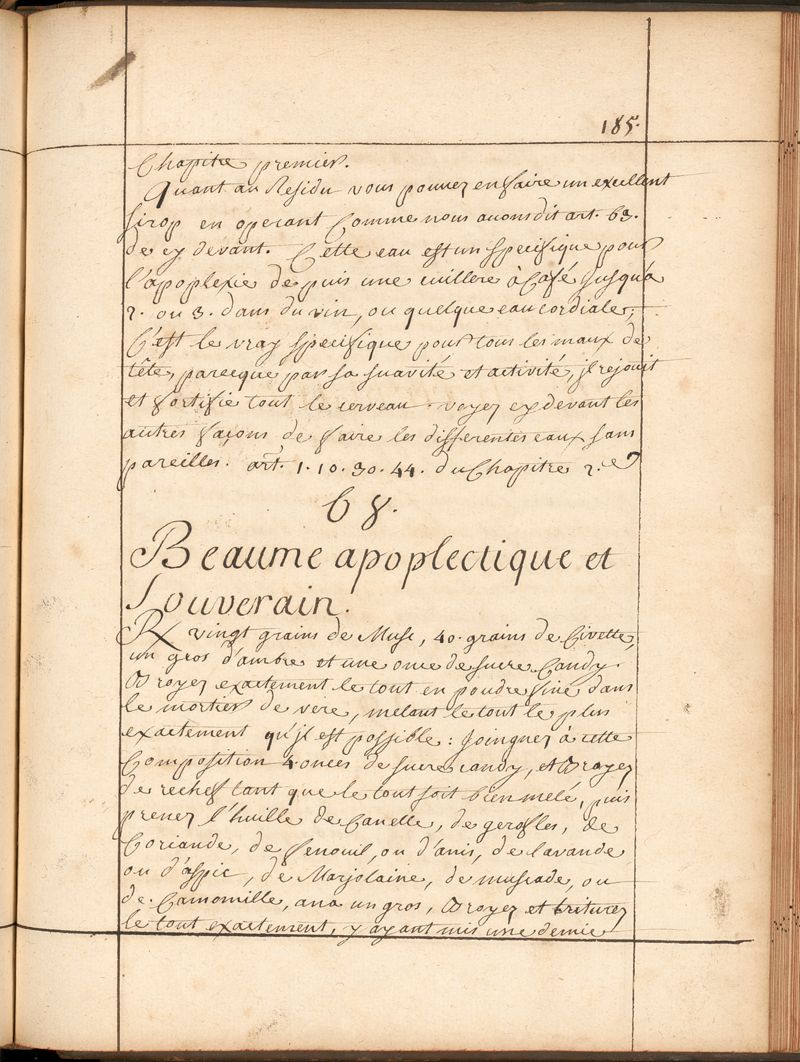 185.
Chapitre premier.
Quant au Residu vous pouvez en faire un excellent
sirop en operant Comme nous avons dit art. 63.
de cy devant. Cette eau est un specifique pour
l'apoplexie de puis une cuillere à Café jusqu'a
2. ou 3. dans du vin, ou quelque eau cordiale,
C'est le vray specifique pour tous les maux de
tête, parceque par sa suavité et activité, jl rejouit
et fortifie tout le cerveau. voyez cy devant les
autres façons de faire les differentes eaux sans
pareilles. art. 1. 10. 30. 44. du Chapitre 2.e
68.
Beaume apoplectique et
Souverain.
℞ vingt grains de Musc, 40. grains de Civette,
un gros d'ambre et une once de sucre Candy.
Broyez exactement le tout en poudre fine dans
le mortier de vere, melant le tout le plus
exactement qu'jl est possible : Joingnez à cette
Composition 4. onces de sucre candy, et Broyez
de rechef tant que le tout soit bien melé, puis
prenez l'huille de Canelle, de gerofles, de
Coriande, de fenouil, ou d'anis, de lavande
ou d'aspic, de Marjolaine, de muscade, ou
de Camomille, ana un gros, Broyez et triturez
le tout exactement, y ayant mis une demie